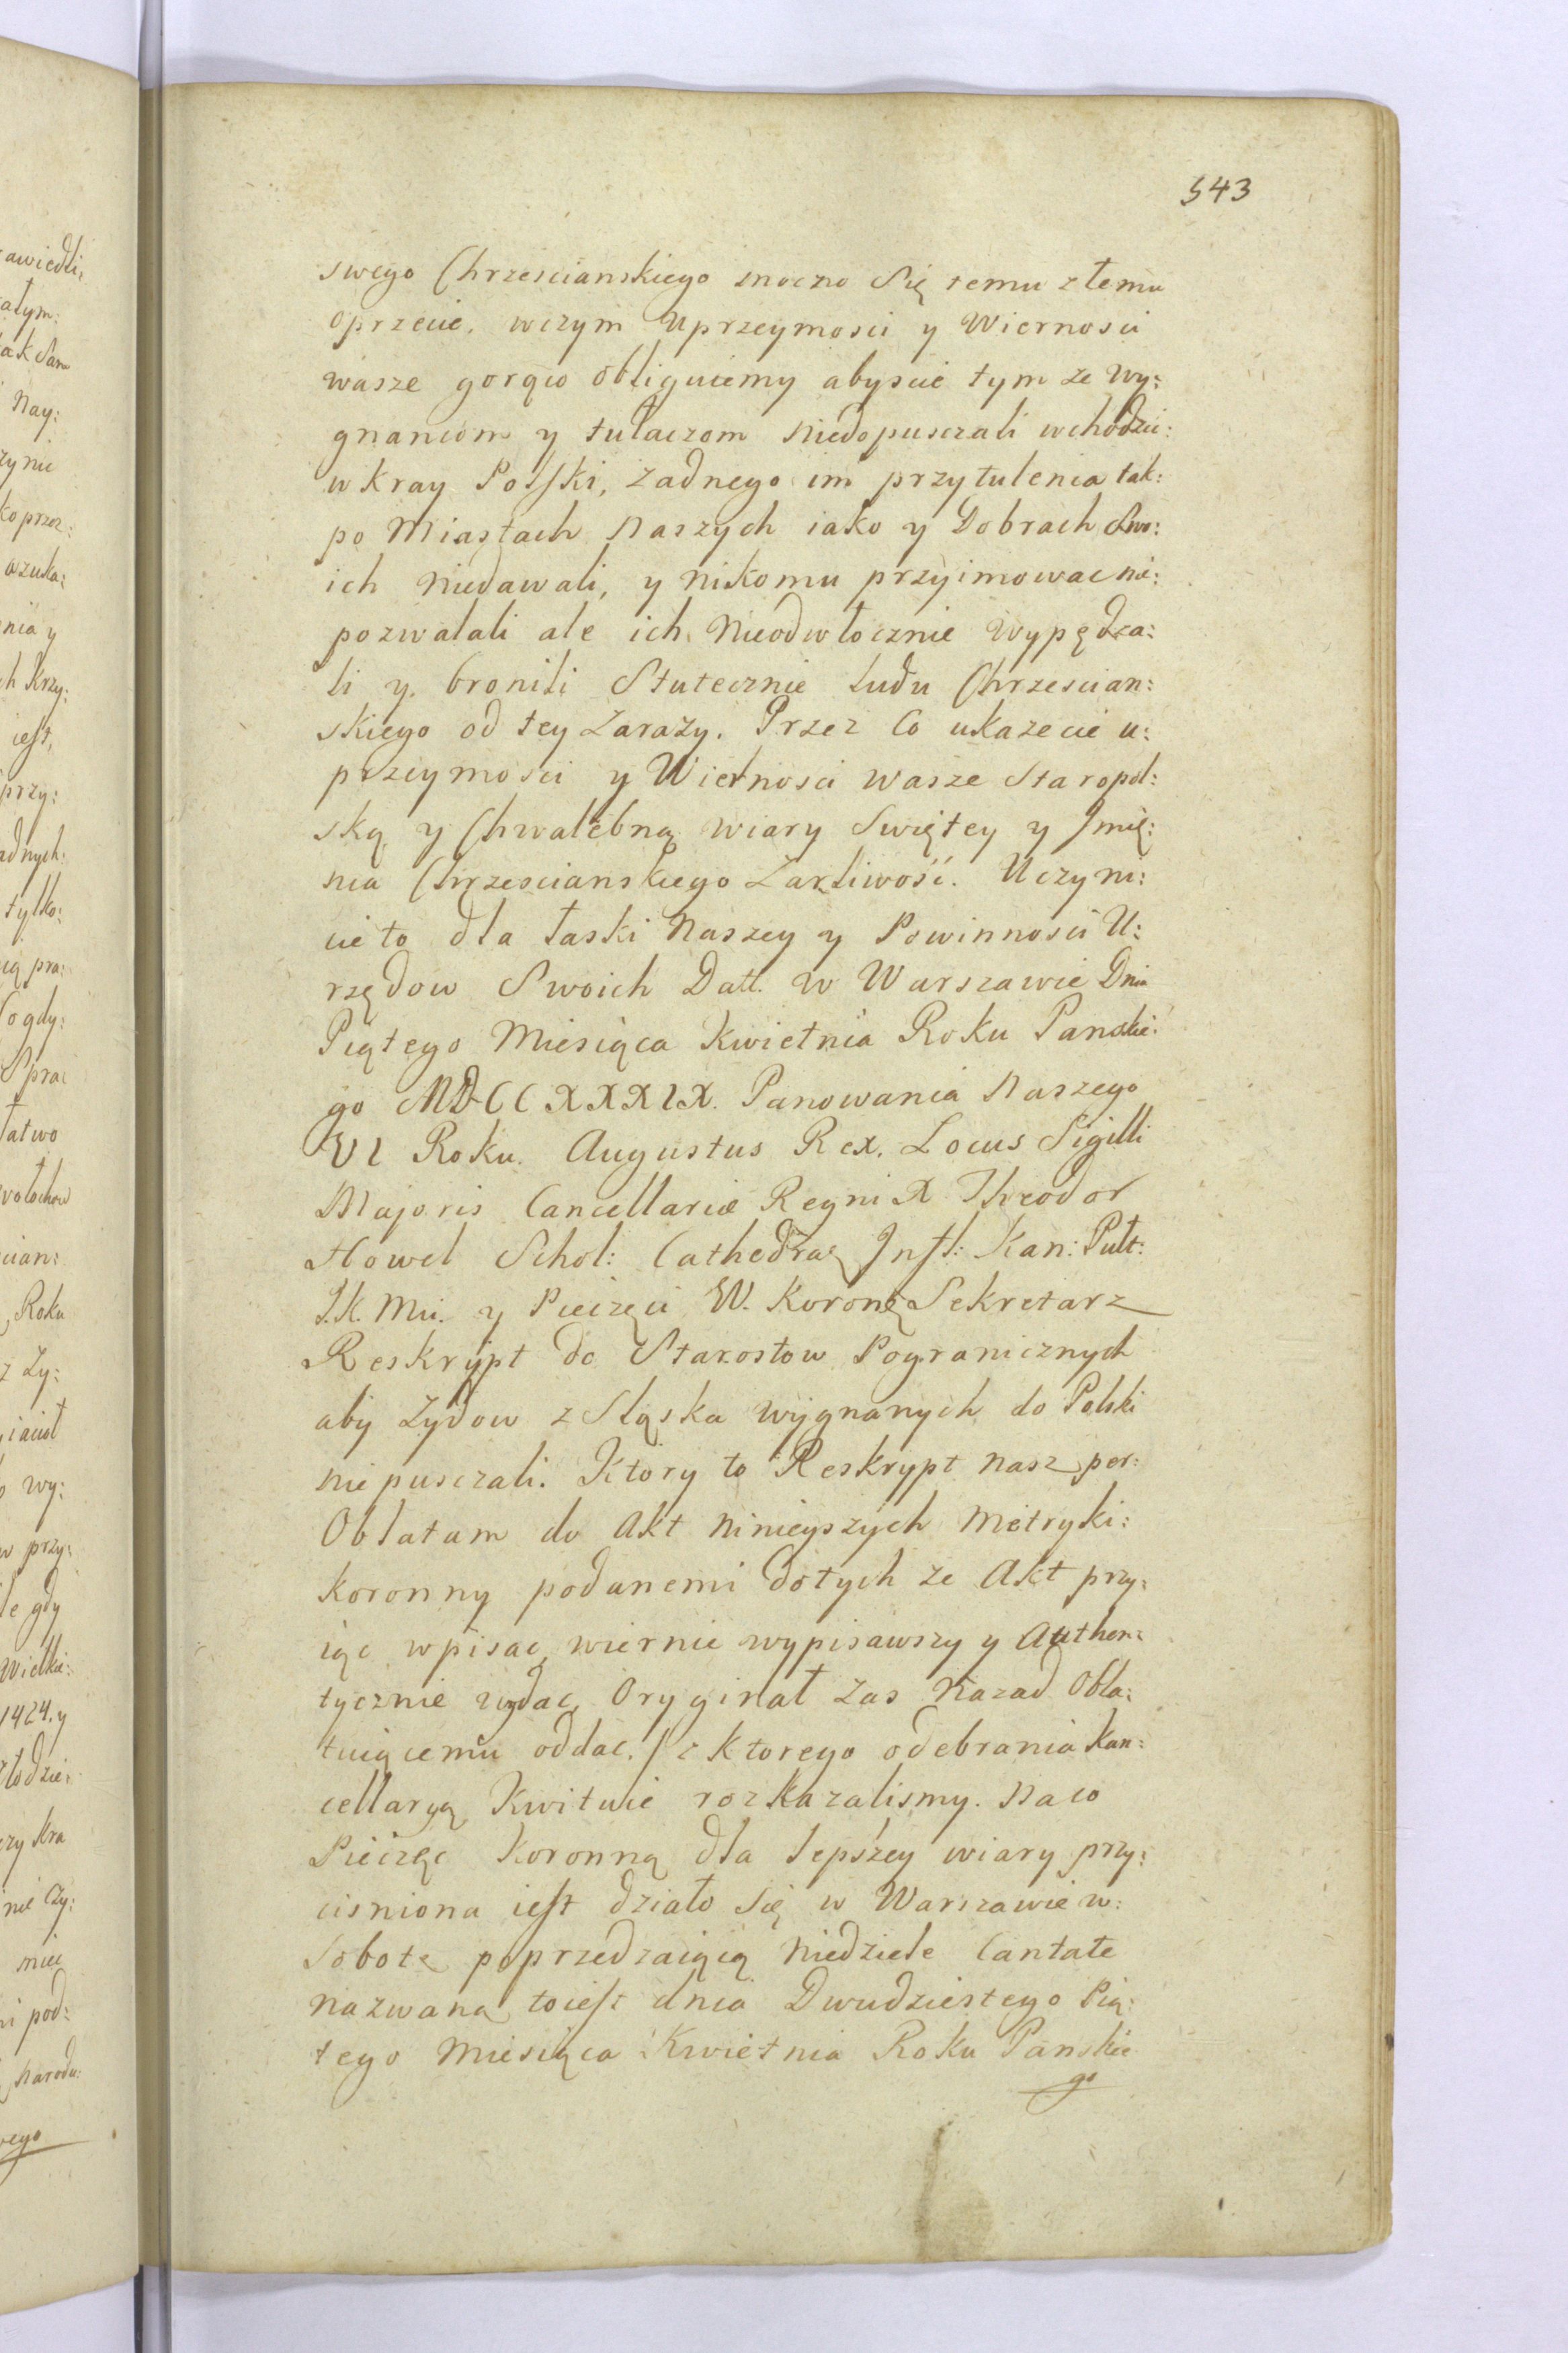 543
swego Chrzescianskiego mocno Się temu złemu
oprzecie. wczym Uprzeymosci y Wiernosci
wasze gorąco obliguiemy abyscie tym ze wy:
gnancom y tułaczom niedopuszczali wchodzic:
w kray Polski, żadnego im przytulenia tak:
po Miastach Naszych iako y Dobrach Swo:
ich niedawali, y nikomu przyimowac nie:
pozwalali ale ich Nieodwłocznie wypędza:
li y bronili Statecznie ludu Chrzescian:
skiego od tey Zarazy. Przez Co ukazecie u:
przeymosci y Wiernosci wasze Staropol:
ską y Chwalebną wiary Swiętey y Jmię:
nia Chrzescianskiego Zarliwość. Uczyni:
cie to dla łaski Naszey y Powinnosci U:
rzędow Swoich Datt. w Warszawie Dnia
Piątego Miesiąca Kwietnia Roku Panskie:
go MDCCXXXIX. Panowania Naszego
VI Roku. Augustus Rex. Locus Sigilli
Majoris Cancellariæ Regni X Theodor
Howel Schol: Cathedrae Infl: Kan: Pult:
J.K. Mci. y Pieczęci W. Koronę Sekretarz
Reskrypt do Starostow Pogranicznych
aby Zydow z Sląska wygnanych do Polski
niepuszczali. Ktory to Reskrypt nasz per:
Oblatam do Akt ninieyszych Metryki:
koronny podanemi dotych ze Akt przy:
iąc wpisac, wiernie wypisawszy y Authen:
tycznie wydac, Oryginał zas Nazad Obla:
tuiącemu oddac. / z ktorego odebrania Kan:
cellaryą Kwituie rozkazalismy. Na co
Pieczęc Koronną dla lepszey wiary przy:
cisniona iest działo Się w Warszawie w:
Sobotę poprzedzaiącą Niedziele Cantate
nazwaną toiest dnia Dwudziestego Pią:
tego Miesiąca Kwietnia Roku Panskie
go